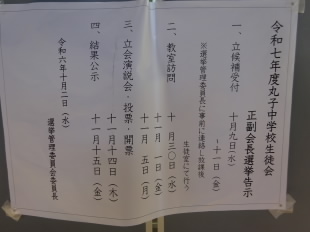 令和七年度丸子中学校生徒会
正副会長選挙告示
一、立候補受付
十月九日(水)
～十一日(金)
※選挙管理委員長に事前に連絡し放課後
生徒会室にて行う
二、教室訪問
十月三〇日(水)
十一月一日(金)
十一月五日(月)
三、立会演説会・投票・開票
十一月十四日(木)
四、結果公示
十一月十五日(金)
令和六年十月二日(水)
選挙管理委員会委員長